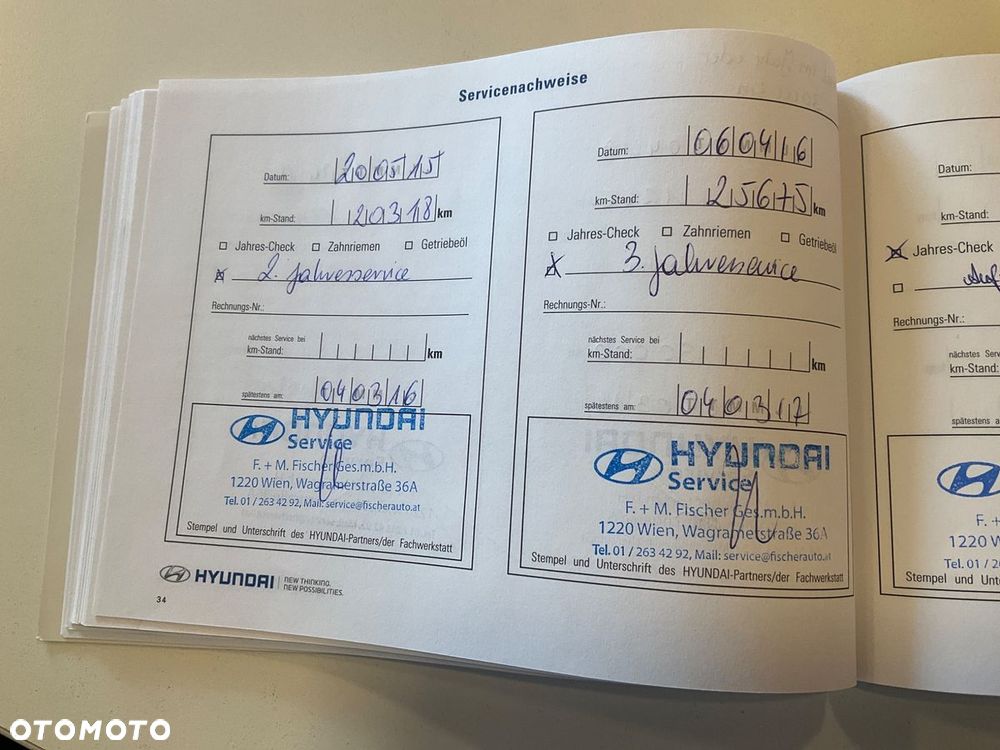 Servicenachweise
Datum: 20 05 15
km-Stand: 20318 km
Jahres-Check Zahnriemen Getriebeöl
x 2. Jahresservice
Rechnungs-Nr.:
nächstes Service bei
km-Stand: km
spätestens am: 04 03 16
HYUNDAI
Service
F. + M. Fischer Ges.m.b.H.
1220 Wien, Wagramerstraße 36A
Tel. 01 / 263 42 92, Mail: service@fischerauto.at
Stempel und Unterschrift des HYUNDAI-Partners/der Fachwerkstatt
HYUNDAI NEW THINKING.
NEW POSSIBILITIES.
34
Datum: 06 04 16
km-Stand: 25675 km
Jahres-Check Zahnriemen Getriebeöl
x 3. Jahresservice
Rechnungs-Nr.:
nächstes Service bei
km-Stand: km
spätestens am: 04 03 17
HYUNDAI
Service
F. + M. Fischer Ges.m.b.H.
1220 Wien, Wagramerstraße 36A
Tel. 01 / 263 42 92, Mail: service@fischerauto.at
Stempel und Unterschrift des HYUNDAI-Partners/der Fachwerkstatt
Datum:
km-Stand:
x Jahres-Check
Rechnungs-Nr.:
nächstes Service
km-Stand:
spätestens a
F. +
1220 W
Tel. 01 / 2
Stempel und Unt
OTOMOTO